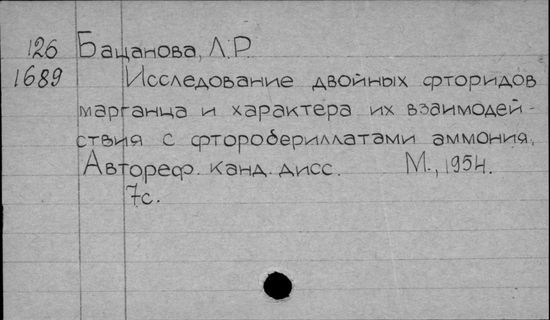 126 Бацанова, Л.Р.
1689 Исследование двойных фторидов
марганца и характера их взаимодей-
ствия с фторобериллатами аммония.
Автореф. канд. дисс. М., 1954.
7с.